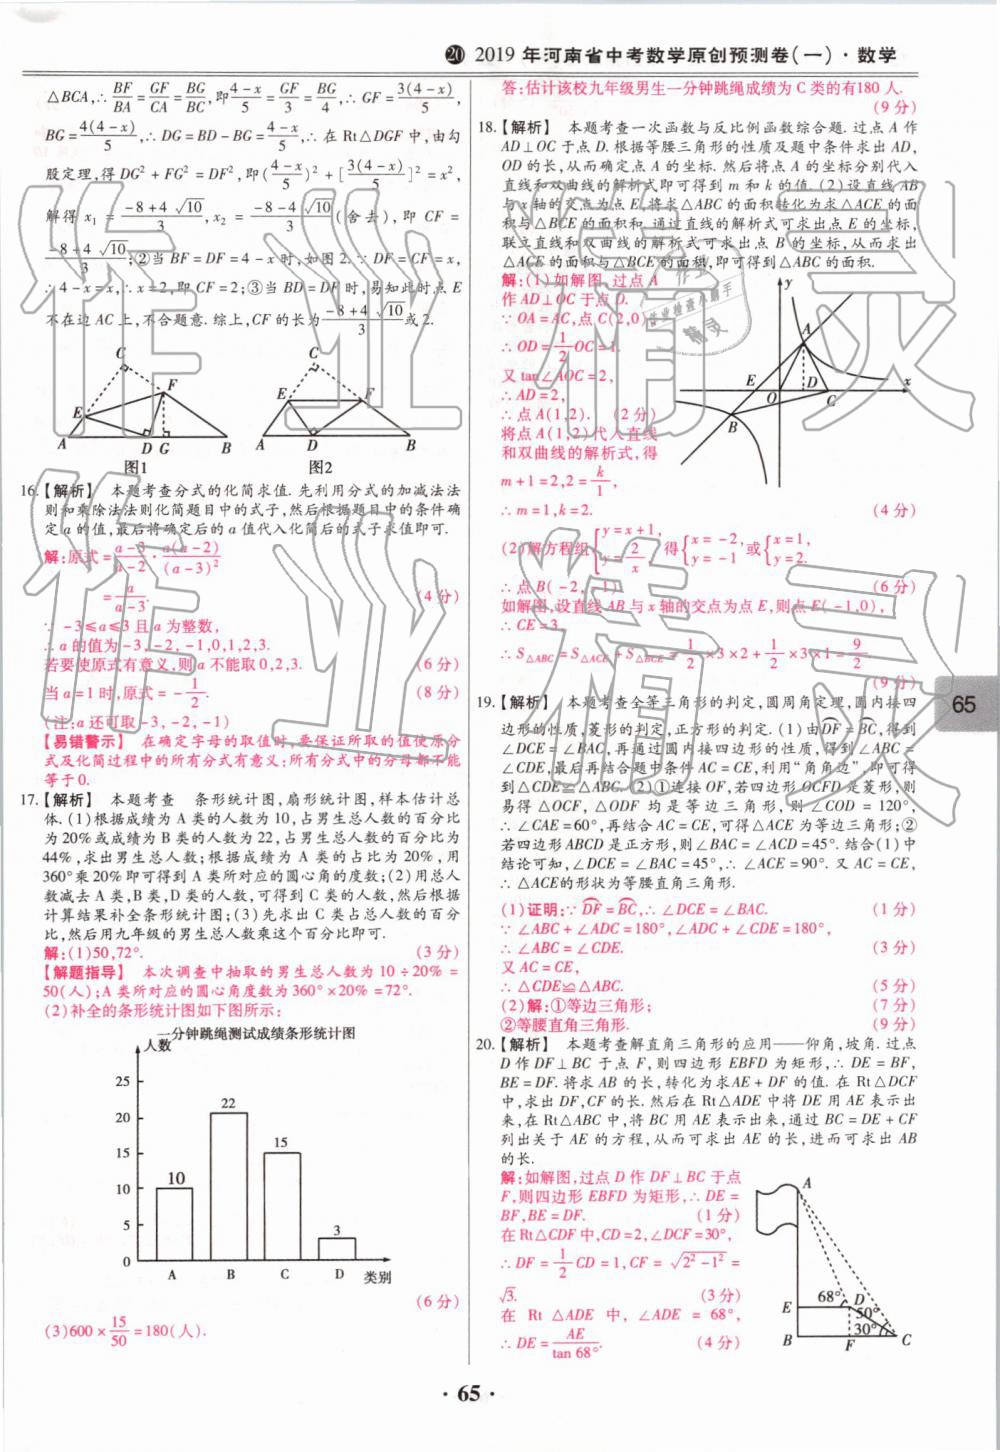 ⑳ 2019 年河南省中考数学原创预测卷(一)·数学
△BCA,∴BF/BA=GF/CA=BG/BC,即(4-x)/5=GF/3=BG/4,∴GF=3(4-x)/5,
BG=4(4-x)/5,∴DG=BD-BG=(4-x)/5.∴在 Rt△DGF 中,由勾
股定理,得DG²+FG²=DF²,即((4-x)/5)²+[3(4-x)/5]²=x²,
解得 x₁=(-8+4√10)/3,x₂=(-8-4√10)/3(舍去),即 CF=
(-8+4√10)/3;②当 BF=DF=4-x时,如图2.∵DF=CF=x,
∴4-x=x,∴x=2,即CF=2;③当BD=DF时,易知此时点E
不在边AC上,不合题意.综上,CF的长为(-8+4√10)/3或2.
C
E
F
A
D G
B
图1
C
E
F
A
D
B
图2
16.【解析】 本题考查分式的化简求值.先利用分式的加减法法
则和乘除法法则化简题目中的式子,然后根据题目中的条件确
定a的值,最后将确定后的a值代入化简后的式子求值即可.
解:原式=(a-3)/(a-2)·a(a-2)/(a-3)²
=a/(a-3). (4分)
∵-3≤a≤3且a为整数,
∴a的值为-3,-2,-1,0,1,2,3.
若要使原式有意义,则a不能取0,2,3. (6分)
当a=1时,原式=-1/2. (8分)
(注:a还可取-3,-2,-1)
【易错警示】 在确定字母的取值时,要保证所取的值使原分
式及化简过程中的所有分式有意义:所有分式中的分母都不能
等于0.
17.【解析】 本题考查 条形统计图,扇形统计图,样本估计总
体.(1)根据成绩为A类的人数为10,占男生总人数的百分比
为20%或成绩为B类的人数为22,占男生总人数的百分比为
44%,求出男生总人数;根据成绩为A类的占比为20%,用
360°乘20%即可得到A类所对应的圆心角的度数;(2)用总人
数减去A类,B类,D类的人数,可得到C类的人数,然后根据
计算结果补全条形统计图;(3)先求出C类占总人数的百分
比,然后用九年级的男生总人数乘这个百分比即可.
解:(1)50,72°. (3分)
【解题指导】 本次调查中抽取的男生总人数为10÷20%=
50(人);A类所对应的圆心角度数为360°×20%=72°.
(2)补全的条形统计图如下图所示:
一分钟跳绳测试成绩条形统计图
人数
25
20
15
10
5
0
10
22
15
3
A B C D 类别
(6分)
(3)600×15/50=180(人).
答:估计该校九年级男生一分钟跳绳成绩为C类的有180人.
(9分)
18.【解析】 本题考查一次函数与反比例函数综合题.过点A作
AD⊥OC于点D.根据等腰三角形的性质及题中条件求出AD,
OD的长,从而确定点A的坐标.然后将点A的坐标分别代入
直线和双曲线的解析式即可得到m和k的值.(2)设直线AB
与x轴的交点为点E,将求△ABC的面积转化为求△ACE的面
积与△BCE的面积和.通过直线的解析式可求出点E的坐标,
联立直线和双曲线的解析式可求出点B的坐标,从而求出
△ACE的面积与△BCE的面积,即可得到△ABC的面积.
解:(1)如解图,过点A
作AD⊥OC于点D.
∵OA=AC,点C(2,0),
∴OD=1/2OC=1.
又tan∠AOC=2,
∴AD=2,
∴点A(1,2). (2分)
将点A(1,2)代入直线
和双曲线的解析式,得
m+1=2,2=k/1,
∴m=1,k=2. (4分)
y
A
E
O
D
C
x
B
(2)解方程组{y=x+1, y=2/x}得{x=-2, y=-1}或{x=1, y=2.
∴点B(-2,-1). (6分)
如解图,设直线AB与x轴的交点为点E,则点E(-1,0),
∴CE=3,
∴S△ABC=S△ACE+S△BCE=1/2×3×2+1/2×3×1=9/2.
(9分)
19.【解析】 本题考查全等三角形的判定,圆周角定理,圆内接四
边形的性质,菱形的判定,正方形的判定.(1)由DF=BC,得到
∠DCE=∠BAC,再通过圆内接四边形的性质,得到∠ABC=
∠CDE,最后再结合题中条件AC=CE,利用“角角边”,即可得
到△CDE≌△ABC.(2)①连接OF,若四边形OCFD是菱形,则
易得△OCF,△ODF均是等边三角形,则∠COD=120°,
∴∠CAE=60°,再结合AC=CE,可得△ACE为等边三角形;②
若四边形ABCD是正方形,则∠BAC=∠ACD=45°.结合(1)中
结论可知,∠DCE=∠BAC=45°,∴∠ACE=90°.又AC=CE,
∴△ACE的形状为等腰直角三角形.
(1)证明:∵DF=BC,∴∠DCE=∠BAC. (1分)
∵∠ABC+∠ADC=180°,∠ADC+∠CDE=180°,
∴∠ABC=∠CDE. (3分)
又AC=CE,
∴△CDE≌△ABC. (5分)
(2)解:①等边三角形; (7分)
②等腰直角三角形. (9分)
20.【解析】 本题考查解直角三角形的应用——仰角,坡角.过点
D作DF⊥BC于点F,则四边形EBFD为矩形,∴DE=BF,
BE=DF.将求AB的长,转化为求AE+DF的值.在Rt△DCF
中,求出DF,CF的长.然后在Rt△ADE中将DE用AE表示出
来,在Rt△ABC中,将BC用AE表示出来,通过BC=DE+CF
列出关于AE的方程,从而可求出AE的长,进而可求出AB
的长.
解:如解图,过点D作DF⊥BC于点
F,则四边形EBFD为矩形,∴DE=
BF,BE=DF. (1分)
在Rt△CDF中,CD=2,∠DCF=30°,
∴DF=1/2CD=1,CF=√(2²-1²)=
√3. (3分)
在 Rt △ADE 中,∠ADE=68°,
∴DE=AE/tan 68°. (4分)
A
68°
E
D
50°
30°
B
F
C
65
·65·
作业精灵
作业精灵